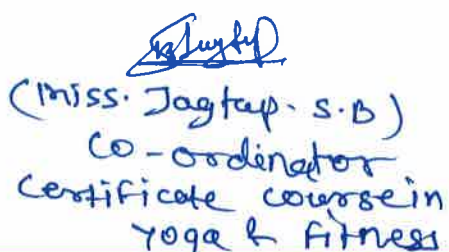 (Miss. Jagtap. S.B)
Co-ordinator
Certificate course in
Yoga & Fitness